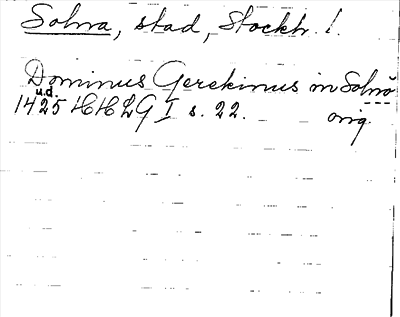 Solna, stad, Stockh. l.
Dominus Gerekinus in Solnö
u.d.
1425 HHLG I s. 22. orig.